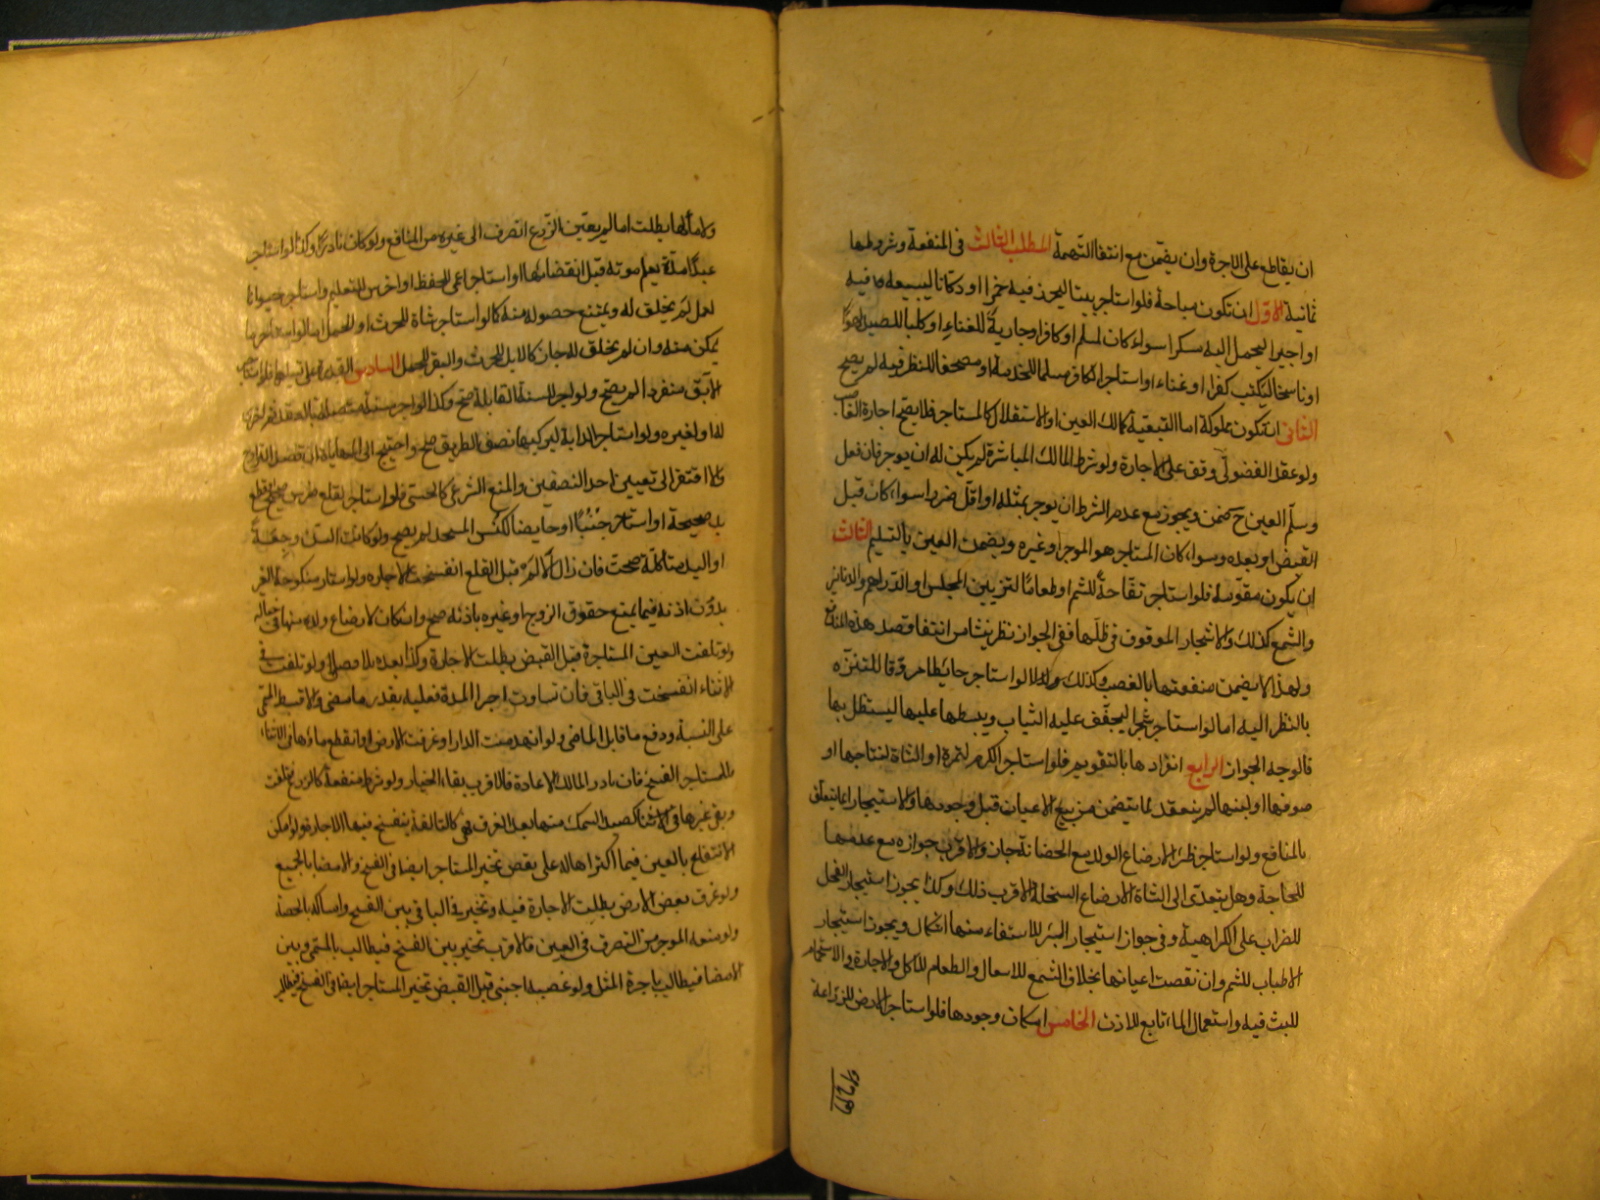 ان يقاطع على الاجرة وان يضمن مع انتفاء التهمة المطلب الثالث فى المنفعة وشروطها
ثمانية الاول ان تكون مباحة فلو استاجر بيتا ليحرز فيه خمرا او دكانا ليبيعه فيه
او اجيرا ليحمل اليه مسكرا سواء كان لمسلم او كافر او جارية للغناء او كلبا للصيد لهوا
او ناسخا ليكتب كفرا او غناء او استاجر الكافر مسلما للخدمة او مصحفا للنظر فيه لم يصح
الثانى ان تكون مملوكة اما بالتبعية كمالك العين او الاستقلال كالمستاجر فلا يصح اجارة الغاصب
ولو عقد الفضولى وقف على الاجارة ولو شرط المالك المباشرة لم يكن له ان يوجر فان فعل
وسلم العين ح ضمن ويجوز مع عدم الشرط ان يوجر بمثله او اقل ضررا سواء كان قبل
القبض او بعده وسواء كان المستاجر هو الموجر او غيره ويضمن العين بالتسليم الثالث
ان يكون متقومة فلو استاجر تفاحة للشم او طعاما لتزيين المجلس او الدراهم والدنانير
والشمع كذلك والاشجار للوقوف فى ظلها ففى الجواز نظر ينشا من انتفاء قصد هذه المنافع
ولهذا لا يضمن منفعتها بالغصب وكذلك لو استاجر حايطا مزوقا للتنزه
بالنظر اليه اما لو استاجر شجرا ليجفف عليه الثياب ويبسطها عليها ليستظل بها
فالوجه الجواز الرابع انفرادها بالتقويم فلو استاجر الكرم لثمرة او الشاة لنتاجها او
صوفها او لبنها لم ينعقد لما يتضمن من بيع الاعيان قبل وجودها والاستيجار انما يتعلق
بالمنافع ولو استاجر ظئرا لارضاع الولد مع الحضانة جاز والاقرب جوازه مع عدمها
للحاجة وهل يتعدى الى الشاة لارضاع السخلة الاقرب ذلك وكذا يجوز استيجار الفحل
للضراب على الكراهية وفى جواز استيجار البئر للاستقاء منها اشكال ويجوز استيجار
الاطياب للشم وان نقصت اعيانها بخلاف الشمع للاشعال والطعام للاكل والاجارة فى الاستحمام
للبث فيه واستعمال الماء تابع للاذن الخامس امكان وجودها فلو استاجر الارض للزراعة
ولا ماء لها بطلت اما لو لم يعين الزرع انصرف الى غيره من المنافع ولو كان نادرا وكذا لو استاجر
عبدا مدة يعلم موته قبل انقضائها او استاجر اعمى للحفظ او اخرس للتعليم او استاجر حيوانا
لعمل لم يخلق له ويمتنع حصوله منه كما لو استاجر شاة للحرث او للحمل اما لو استاجر ما
يمكن منه وان لم يخلق له جاز كالابل للحرث والبقر للحمل السادس القدرة على تسليمها فلو استاجر
الآبق منفردا لم يصح ولو اجر للسنة القابلة صح وكذا لو اجر سنة متصلة بالعقد ثم اخرى
له او لغيره ولو استاجر الدابة ليركبها نصف الطريق صح واحتيج الى المهاياة ان قصد التراخى
والا افتقر الى تعيين احد النصفين والمنع الشرعى كالحسى فلو استاجر لقلع ضرس صحيح او قطع
يد صحيحة او استاجر جنبا او حايضا لكنس المسجد لم يصح ولو كانت السن وجعة
او اليد متاكلة صحت فان زال الالم قبل القلع انفسخت الاجارة ولو استاجر منكوحة الغير
بدون اذنه فيما يمنع حقوق الزوج او غيره باذنه صح وان كان لارضاع ولده منها فى حباله
ولو تلفت العين المستاجرة قبل القبض بطلت الاجارة وكذا بعده بلا فصل ولو تلفت فى
الاثناء انفسخت فى الباقى فان تساوت اجزاء المدة فعليه بقدر ما مضى والا قسط المسمى
على النسبة ودفع ما قابل الماضى ولو انهدمت الدار او غرقت الارض او انقطع ماؤها فى الاثناء
فللمستاجر الفسخ فان بادر المالك الى الاعادة فالاقرب بقاء الخيار ولو شرط منفعة كالزرع فتلفت
وبقى غيرها فى الاثناء كصيد السمك منها بعد الغرق فهى كالتالفة ينفسخ فيها الاجارة ولو امكن
الانتفاع بالعين فيما اكتراها له على نقص تخير المستاجر ايضا فى الفسخ والامضاء بالجميع
ولو غرق بعض الارض بطلت الاجارة فيه وتخير فى الباقى بين الفسخ وامساكه بالحصة
ولو منعه الموجر من التصرف فى العين فالاقرب تخيره بين الفسخ فيطالب بالمسمى وبين
الامضاء فيطالب باجرة المثل ولو غصبه اجنبى قبل القبض تخير المستاجر ايضا فى الفسخ فيطالب